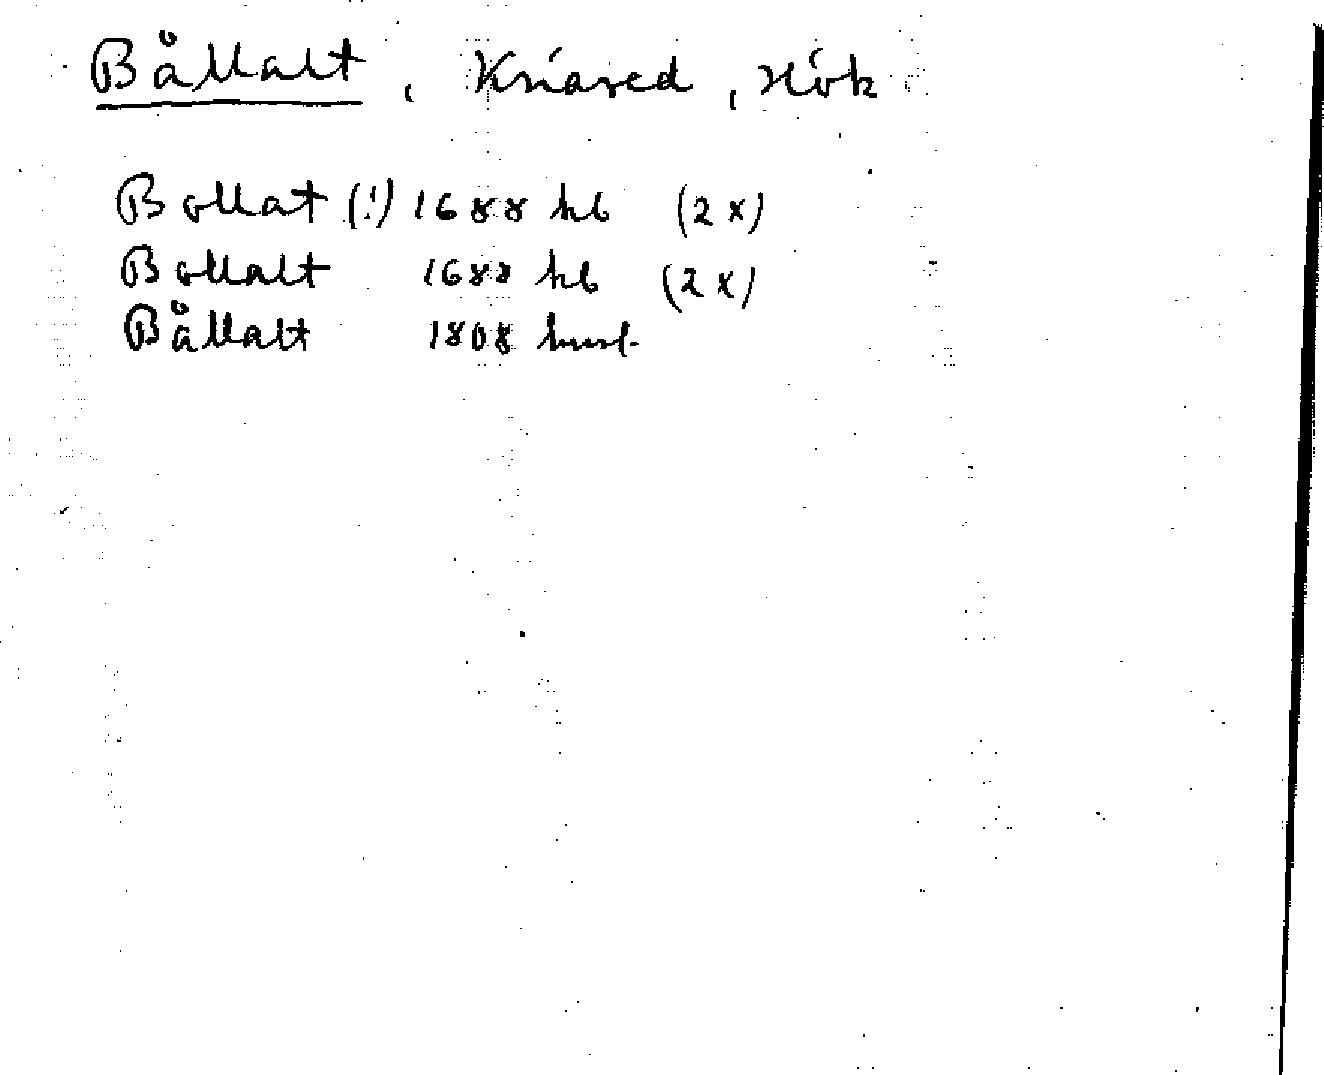 Bållalt, Knäred, Hök
Bollat (!) 1688 hb (2x)
Bollalt 1688 hb (2x)
Bållalt 1808 husf.